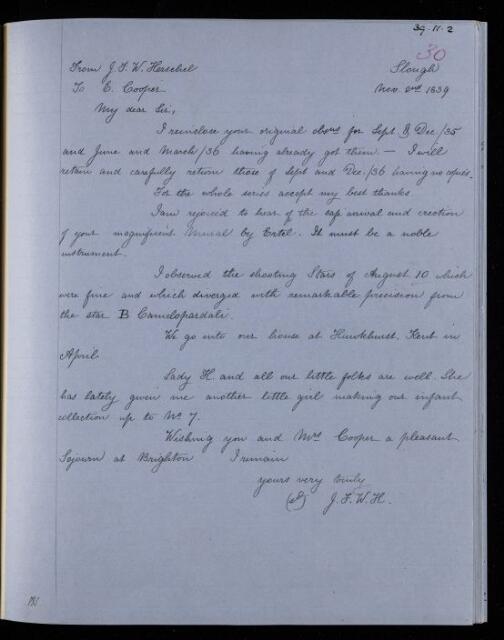 39-11-2
30
From J. F. W. Herschel Slough
To E. Cooper Nov. 2nd 1839
My dear Sir,
I reinclose your original obsns for Sept. & Dec./35
and June and March/36 having already got them. — I will
retain and carefully return those of Sept and Dec./36 having no copies.
For the whole series accept my best thanks.
I am rejoiced to hear of the safe arrival and erection
of your magnificent Mural by Ertel. It must be a noble
instrument.
I observed the shooting Stars of August 10 which
were fine and which diverged with remarkable precision from
the star B Camelopardali.
We go into our house at Hawkhurst, Kent in
April
Lady H. and all our little folks are well. She
has lately given me another little girl making our infant
collection up to No. 7.
Wishing you and Mrs Cooper a pleasant
Sojourn at Brighton I remain
yours very truly
J. F. W. H.